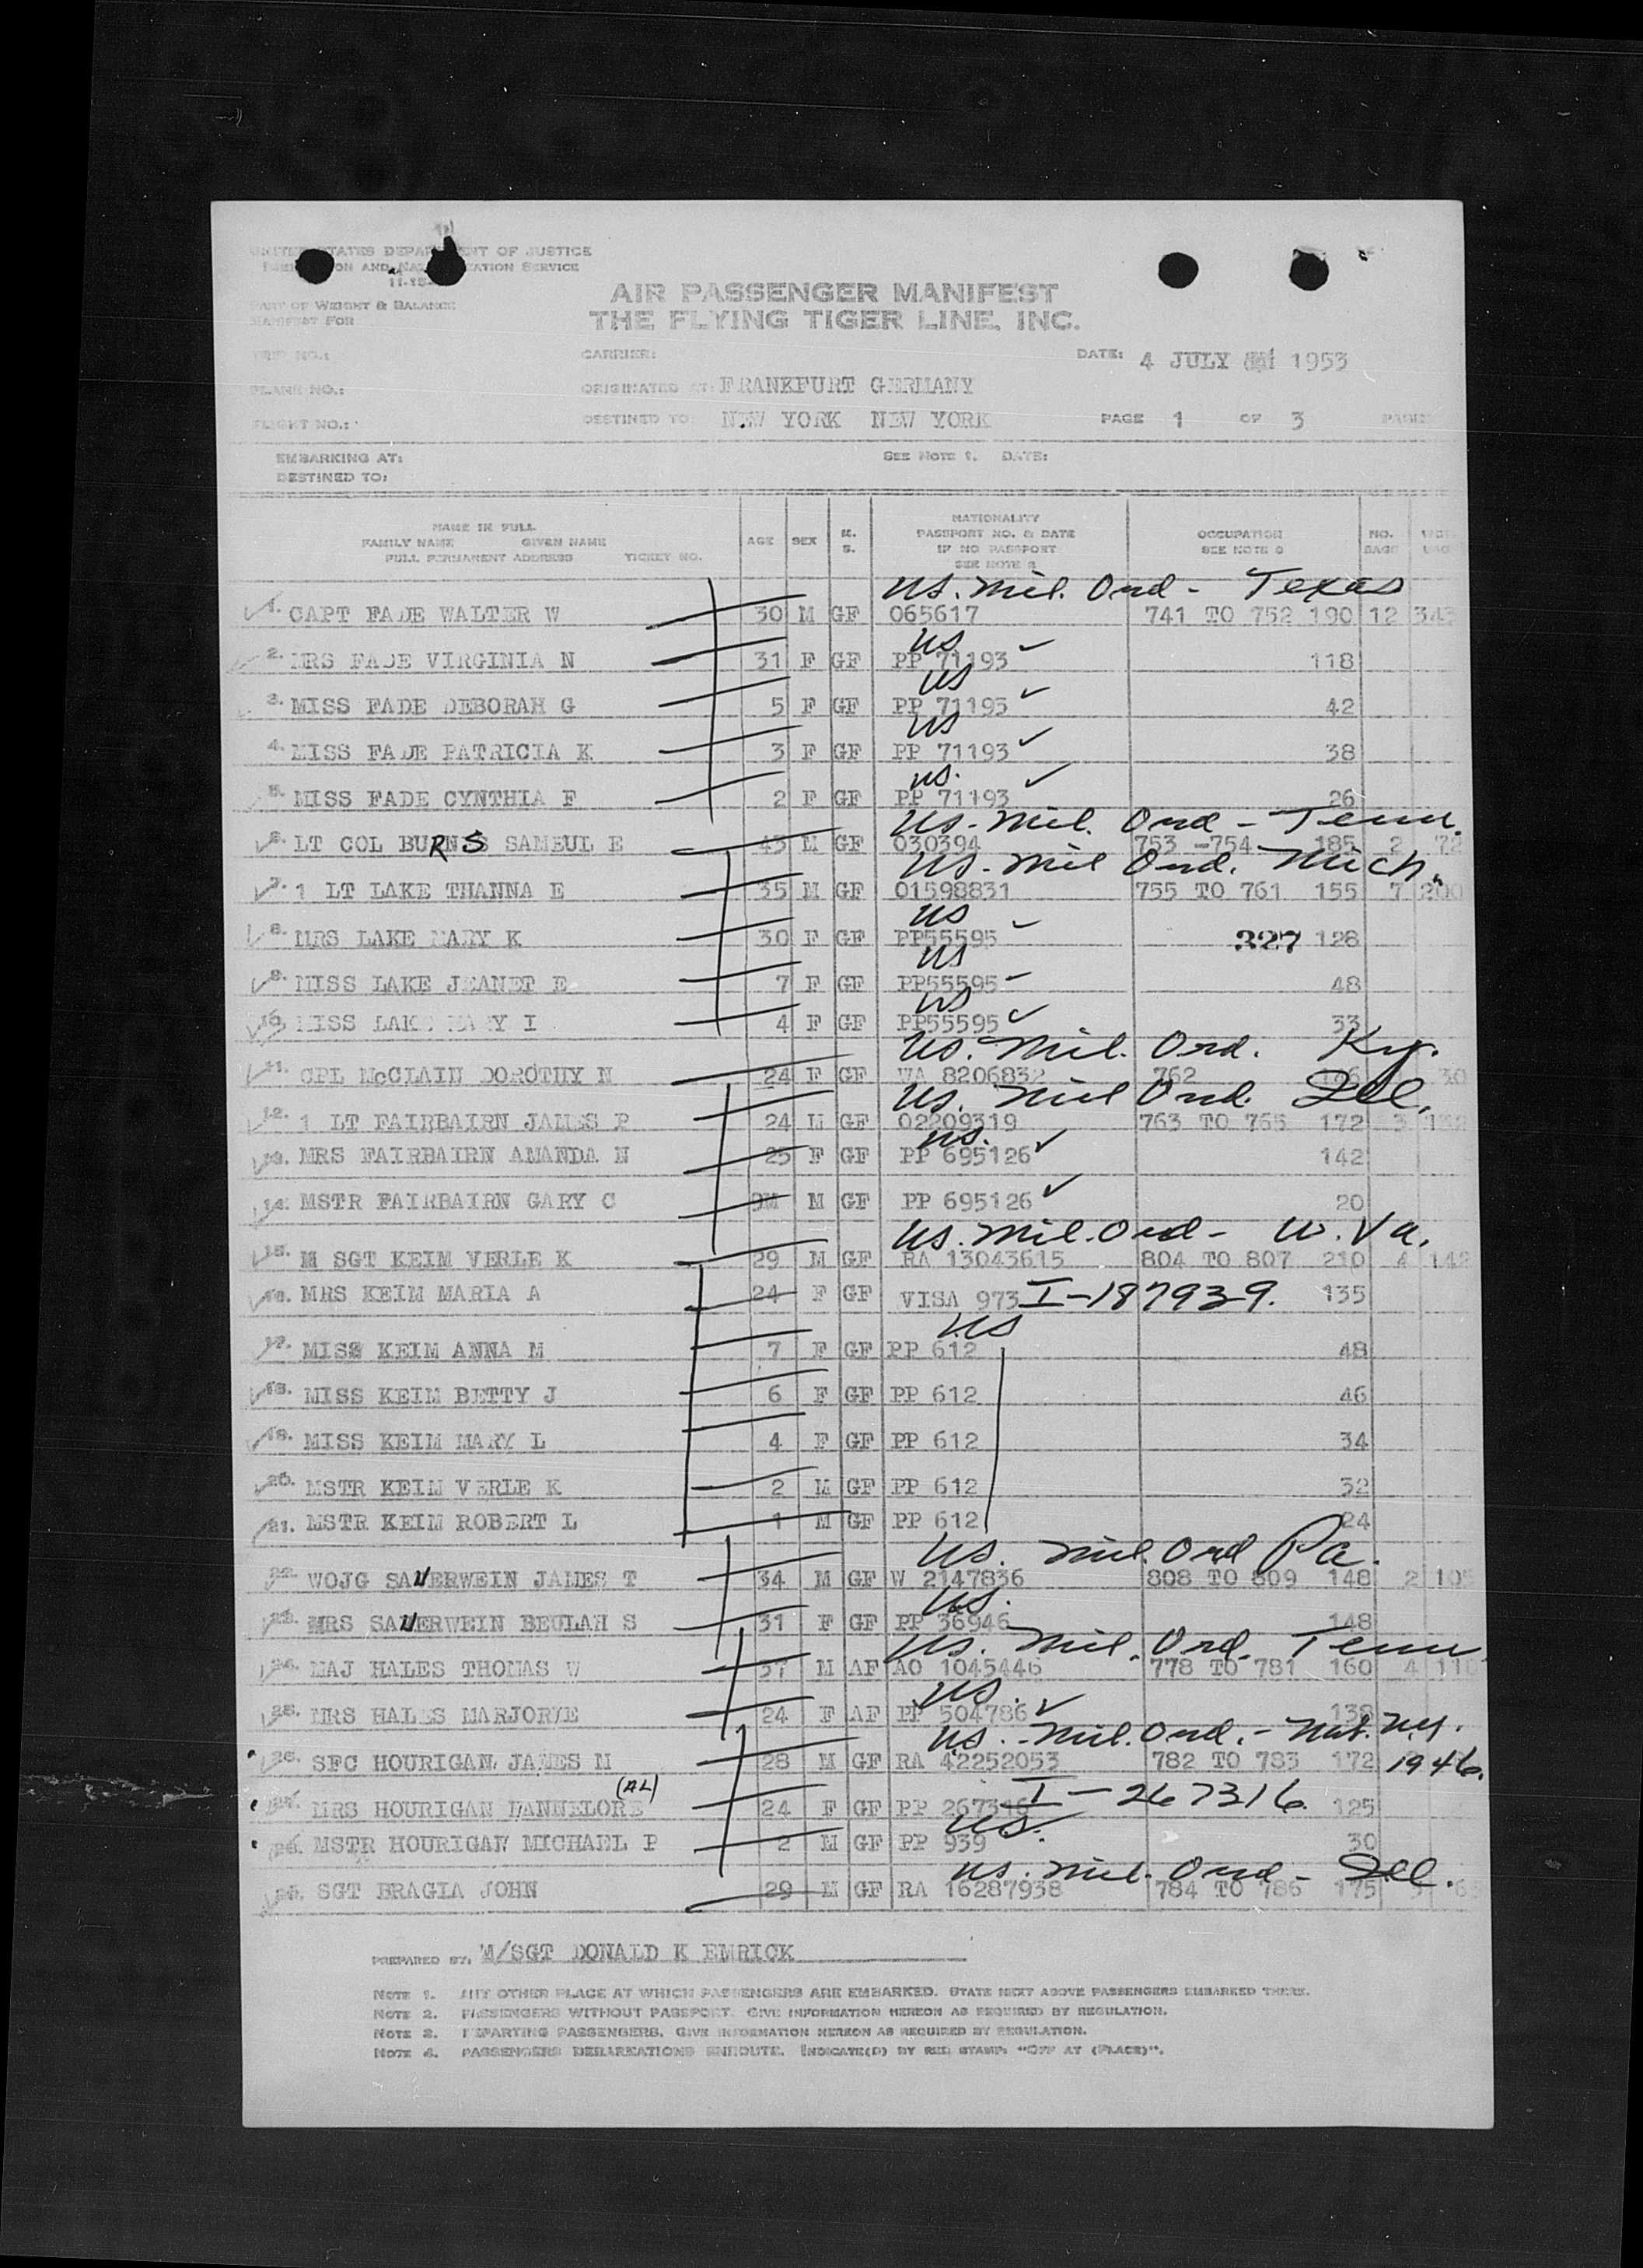 UNITED STATES DEPARTMENT OF JUSTICE
IMMIGRATION AND NATURALIZATION SERVICE
PART OF WEIGHT & BALANCE
MANIFEST FOR
AIR PASSENGER MANIFEST
THE FLYING TIGER LINE, INC.
TRIP NO.: CARRIER: DATE: 4 JULY 1953
PLANE NO.: ORIGINATED AT: FRANKFURT GERMANY
FLIGHT NO.: DESTINED TO: NEW YORK NEW YORK PAGE 1 OF 3 PAGES
EMBARKING AT: SEE NOTE 1. DATE:
DESTINED TO:
NAME IN FULL
FAMILY NAME GIVEN NAME
FULL PERMANENT ADDRESS TICKET NO.
AGE SEX M. S.
NATIONALITY
PASSPORT NO. & DATE
IF NO PASSPORT
SEE NOTE 2
OCCUPATION
SEE NOTE 3
NO. BAGS
US. Mil. Ord - Texas
1. CAPT FADE WALTER W 30 M GF 065617 741 TO 752 190 12 343
US
2. MRS FADE VIRGINIA N 31 F GF PP 71193 118
US
3. MISS FADE DEBORAH G 5 F GF PP 71193 42
US
4. MISS FADE PATRICIA K 3 F GF PP 71193 38
US.
5. MISS FADE CYNTHIA F 2 F GF PP 71193 26
US. Mil. Ord - Tenn.
6. LT COL BURNS SAMEUL E 43 M GF 030394 753 -754 185 2 72
US. Mil Ord. Mich.
7. 1 LT LAKE THANNA E 35 M GF 01598831 755 TO 761 155 7 200
US
8. MRS LAKE MARY K 30 F GF PP55595 327 128
US
9. MISS LAKE JEANET E 7 F GF PP55595 48
US
10. MISS LAKE MARY I 4 F GF PP55595 33
US. Mil. Ord. Ky.
11. CPL McCLAIN DOROTHY N 24 F GF WA 8206832 762 30
US. Mil Ord. Ill.
12. 1 LT FAIRBAIRN JAMES P 24 M GF 02209319 763 TO 765 172 3 132
US.
13. MRS FAIRBAIRN AMANDA N 25 F GF PP 695126 142
14. MSTR FAIRBAIRN GARY C 9M M GF PP 695126 20
US. Mil. Ord - W. Va.
15. M SGT KEIM VERLE K 29 M GF RA 13043615 804 TO 807 210 4 142
16. MRS KEIM MARIA A 24 F GF VISA 973 I-187939. 135
US
17. MISS KEIM ANNA M 7 F GF PP 612 48
18. MISS KEIM BETTY J 6 F GF PP 612 46
19. MISS KEIM MARY L 4 F GF PP 612 34
20. MSTR KEIM VERLE K 2 M GF PP 612 32
21. MSTR KEIM ROBERT L 1 M GF PP 612 24
US. Mil. Ord Pa.
22. WOJG SAUERWEIN JAMES T 34 M GF W 2147836 808 TO 809 148 2
US.
23. MRS SAUERWEIN BEULAH S 31 F GF PP 36946 148
US. Mil. Ord. Tenn
24. MAJ HALES THOMAS W 37 M AF AO 1045446 778 TO 781 160 4 110
US.
25. MRS HALES MARJORYE 24 F AF PP 504786 138
US. - Mil. Ord. - Nat. N.Y.
26. SFC HOURIGAN JAMES M 28 M GF RA 42252053 782 TO 783 172 1946.
(AL)
27. MRS HOURIGAN HANNELORE 24 F GF PP 267316 I-267316. 125
US.
28. MSTR HOURIGAN MICHAEL P 2 M GF PP 939 30
US. Mil. Ord - Ill.
29. SGT BRAGIA JOHN 29 M GF RA 16287938 784 TO 786 175
PREPARED BY: M/SGT DONALD K EMRICK
NOTE 1. ANY OTHER PLACE AT WHICH PASSENGERS ARE EMBARKED. STATE NEXT ABOVE PASSENGERS EMBARKED THERE.
NOTE 2. PASSENGERS WITHOUT PASSPORT. GIVE INFORMATION HEREON AS REQUIRED BY REGULATION.
NOTE 3. DEPARTING PASSENGERS. GIVE INFORMATION HEREON AS REQUIRED BY REGULATION.
NOTE 4. PASSENGERS DEBARKATIONS ENROUTE. INDICATE(D) BY RED STAMP: "OFF AT (PLACE)".